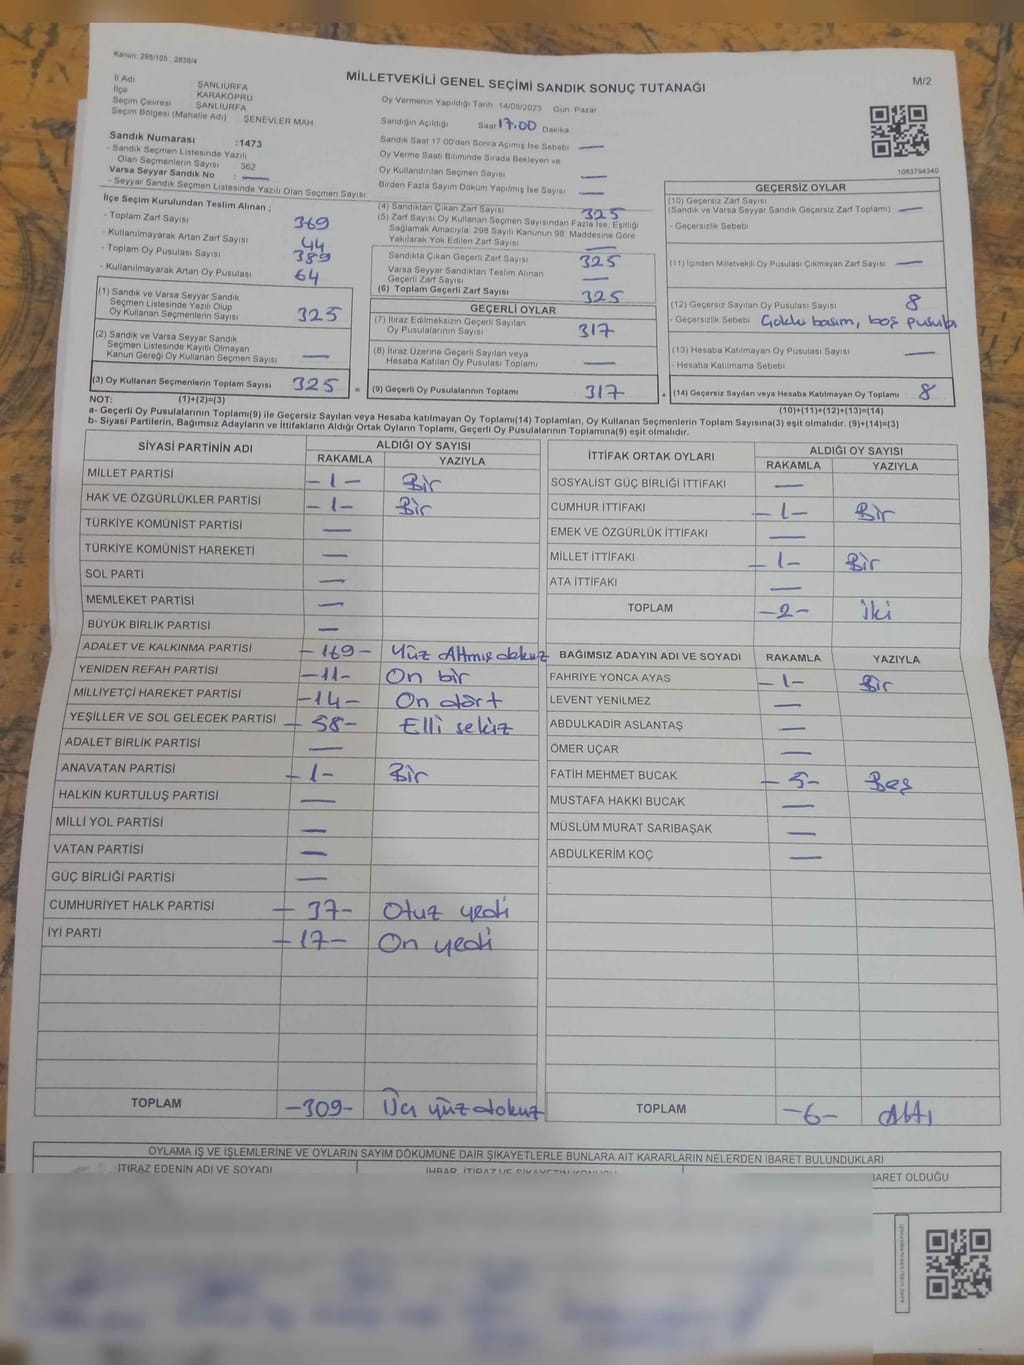 Kanun: 298/105 , 2839/4
MİLLETVEKİLİ GENEL SEÇİMİ SANDIK SONUÇ TUTANAĞI
M/2
İl Adı ŞANLIURFA
İlçe KARAKÖPRÜ
Seçim Çevresi ŞANLIURFA
Seçim Bölgesi (Mahalle Adı) : ŞENEVLER MAH
Sandık Numarası :1473
- Sandık Seçmen Listesinde Yazılı
Olan Seçmenlerin Sayısı : 362
Varsa Seyyar Sandık No : —
- Seyyar Sandık Listesinde Yazılı Olan Seçmen Sayısı
Oy Vermenin Yapıldığı Tarih 14/05/2023 Gün: Pazar
Sandığın Açıldığı Saat 17.00 Dakika
Sandık Saat 17.00'den Sonra Açılmış İse Sebebi —
Oy Verme Saati Bitiminde Sırada Bekleyen ve
Oy Kullandırılan Seçmen Sayısı —
Birden Fazla Sayım Döküm Yapılmış İse Sayısı —
1083794340
İlçe Seçim Kurulundan Teslim Alınan ;
- Toplam Zarf Sayısı 369
- Kullanılmayarak Artan Zarf Sayısı 44
- Toplam Oy Pusulası Sayısı 389
- Kullanılmayarak Artan Oy Pusulası 64
(1) Sandık ve Varsa Seyyar Sandık
Seçmen Listesinde Yazılı Olup
Oy Kullanan Seçmenlerin Sayısı 325
(2) Sandık ve Varsa Seyyar Sandık
Seçmen Listesinde Kayıtlı Olmayan
Kanun Gereği Oy Kullanan Seçmen Sayısı —
(3) Oy Kullanan Seçmenlerin Toplam Sayısı 325 =
(4) Sandıktan Çıkan Zarf Sayısı 325
(5) Zarf Sayısı Oy Kullanan Seçmen Sayısından Fazla İse, Eşitliği
Sağlamak Amacıyla, 298 Sayılı Kanunun 98. Maddesine Göre
Yakılarak Yok Edilen Zarf Sayısı —
Sandıkta Çıkan Geçerli Zarf Sayısı 325
Varsa Seyyar Sandıktan Teslim Alınan
Geçerli Zarf Sayısı —
(6) Toplam Geçerli Zarf Sayısı 325
GEÇERLİ OYLAR
(7) İtiraz Edilmeksizin Geçerli Sayılan
Oy Pusulalarının Sayısı 317
(8) İtiraz Üzerine Geçerli Sayılan veya
Hesaba Katılan Oy Pusulası Toplamı —
(9) Geçerli Oy Pusulalarının Toplamı 317 +
GEÇERSİZ OYLAR
(10) Geçersiz Zarf Sayısı
(Sandık ve Varsa Seyyar Sandık Geçersiz Zarf Toplamı) —
- Geçersizlik Sebebi
(11) İçinden Milletvekili Oy Pusulası Çıkmayan Zarf Sayısı —
(12) Geçersiz Sayılan Oy Pusulası Sayısı 8
- Geçersizlik Sebebi Çoklu basım, boş pusula
(13) Hesaba Katılmayan Oy Pusulası Sayısı —
- Hesaba Katılmama Sebebi
(14) Geçersiz Sayılan veya Hesaba Katılmayan Oy Toplamı 8
NOT: (1)+(2)=(3) (10)+(11)+(12)+(13)=(14)
a- Geçerli Oy Pusulalarının Toplamı(9) ile Geçersiz Sayılan veya Hesaba katılmayan Oy Toplamı(14) Toplamları, Oy Kullanan Seçmenlerin Toplam Sayısına(3) eşit olmalıdır. (9)+(14)=(3)
b- Siyasi Partilerin, Bağımsız Adayların ve İttifakların Aldığı Ortak Oyların Toplamı, Geçerli Oy Pusulalarının Toplamına(9) eşit olmalıdır.
SİYASİ PARTİNİN ADI ALDIĞI OY SAYISI
RAKAMLA YAZIYLA
MİLLET PARTİSİ -1- Bir
HAK VE ÖZGÜRLÜKLER PARTİSİ -1- Bir
TÜRKİYE KOMÜNİST PARTİSİ —
TÜRKİYE KOMÜNİST HAREKETİ —
SOL PARTİ —
MEMLEKET PARTİSİ —
BÜYÜK BİRLİK PARTİSİ —
ADALET VE KALKINMA PARTİSİ -169- Yüz Altmış dokuz
YENİDEN REFAH PARTİSİ -11- On bir
MİLLİYETÇİ HAREKET PARTİSİ -14- On dört
YEŞİLLER VE SOL GELECEK PARTİSİ -58- Elli sekiz
ADALET BİRLİK PARTİSİ —
ANAVATAN PARTİSİ -1- Bir
HALKIN KURTULUŞ PARTİSİ —
MİLLİ YOL PARTİSİ —
VATAN PARTİSİ —
GÜÇ BİRLİĞİ PARTİSİ —
CUMHURİYET HALK PARTİSİ -37- Otuz yedi
İYİ PARTİ -17- On yedi
TOPLAM -309- Üç yüz dokuz
İTTİFAK ORTAK OYLARI ALDIĞI OY SAYISI
RAKAMLA YAZIYLA
SOSYALİST GÜÇ BİRLİĞİ İTTİFAKI —
CUMHUR İTTİFAKI -1- Bir
EMEK VE ÖZGÜRLÜK İTTİFAKI —
MİLLET İTTİFAKI -1- Bir
ATA İTTİFAKI —
TOPLAM -2- İki
BAĞIMSIZ ADAYIN ADI VE SOYADI RAKAMLA YAZIYLA
FAHRİYE YONCA AYAS -1- Bir
LEVENT YENİLMEZ —
ABDULKADİR ASLANTAŞ —
ÖMER UÇAR —
FATİH MEHMET BUCAK -5- Beş
MUSTAFA HAKKI BUCAK —
MÜSLÜM MURAT SARIBAŞAK —
ABDULKERİM KOÇ —
TOPLAM -6- Altı
OYLAMA İŞ VE İŞLEMLERİNE VE OYLARIN SAYIM DÖKÜMÜNE DAİR ŞİKAYETLERLE BUNLARA AİT KARARLARIN NELERDEN İBARET BULUNDUKLARI
İTİRAZ EDENİN ADI VE SOYADI İHBAR, İTİRAZ VE ŞİKAYETİN KONUSU BARET OLDUĞU